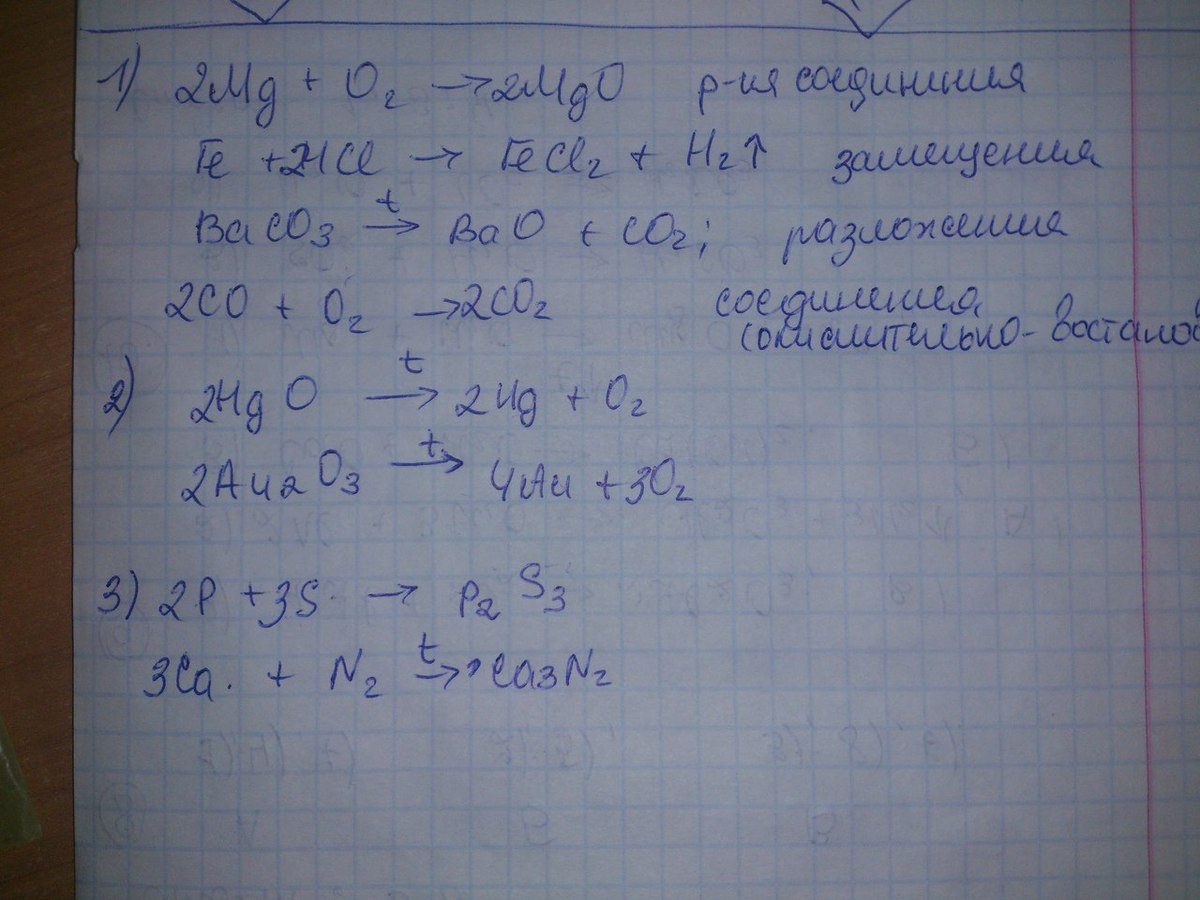 1) 2Mg + O₂ → 2MgO р-ия соединения
Fe + 2HCl → FeCl₂ + H₂↑ замещения
BaCO₃ t→ BaO + CO₂; разложения
2CO + O₂ → 2CO₂ соединения
(окислительно-
2) 2HgO t→ 2Hg + O₂
2Au₂O₃ t→ 4Au + 3O₂
3) 2P + 3S → P₂S₃
3Ca + N₂ t→ Ca₃N₂